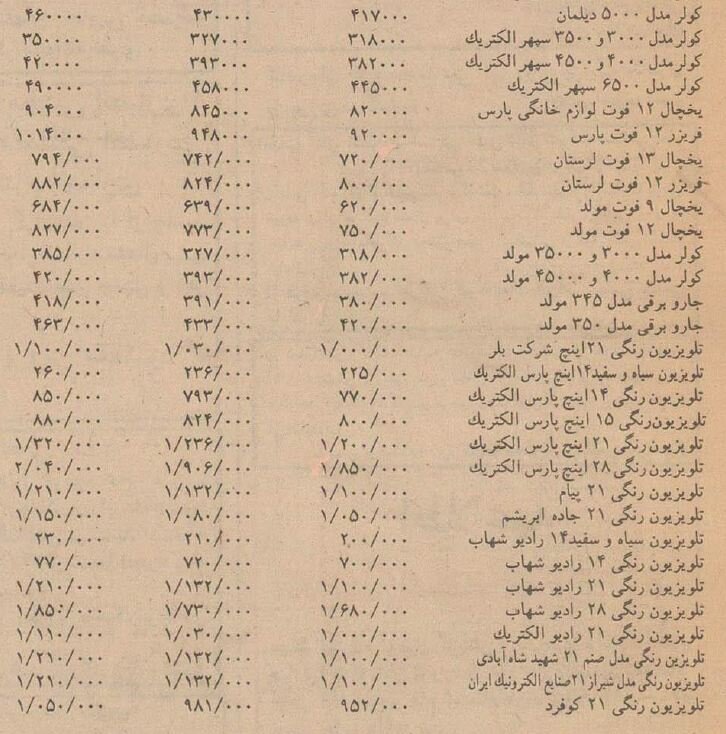 کولر مدل ۵۰۰۰ دیلمان ۴۱۷۰۰۰ ۴۳۰۰۰۰ ۴۶۰۰۰۰
کولر مدل ۳۰۰۰ و ۳۵۰۰ سپهر الکتریك ۳۱۸۰۰۰ ۳۲۷۰۰۰ ۳۵۰۰۰۰
کولر مدل ۴۰۰۰ و ۴۵۰۰ سپهر الکتریك ۳۸۲۰۰۰ ۳۹۳۰۰۰ ۴۲۰۰۰۰
کولر مدل ۶۵۰۰ سپهر الکتریك ۴۴۵۰۰۰ ۴۵۸۰۰۰ ۴۹۰۰۰۰
یخچال ۱۲ فوت لوازم خانگی پارس ۸۲۰۰۰۰ ۸۴۵۰۰۰ ۹۰۴۰۰۰
فریزر ۱۲ فوت پارس ۹۲۰۰۰۰ ۹۴۸۰۰۰ ۱۰۱۴۰۰۰
یخچال ۱۳ فوت لرستان ۷۲۰/۰۰۰ ۷۴۲/۰۰۰ ۷۹۴/۰۰۰
فریزر ۱۲ فوت لرستان ۸۰۰/۰۰۰ ۸۲۴/۰۰۰ ۸۸۲/۰۰۰
یخچال ۹ فوت مولد ۶۲۰/۰۰۰ ۶۳۹/۰۰۰ ۶۸۴/۰۰۰
یخچال ۱۲ فوت مولد ۷۵۰/۰۰۰ ۷۷۳/۰۰۰ ۸۲۷/۰۰۰
کولر مدل ۳۰۰۰ و ۳۵۰۰۰ مولد ۳۱۸/۰۰۰ ۳۲۷/۰۰۰ ۳۸۵/۰۰۰
کولر مدل ۴۰۰۰ و ۴۵۰۰۰ مولد ۳۸۲/۰۰۰ ۳۹۳/۰۰۰ ۴۲۰/۰۰۰
جارو برقی مدل ۳۴۵ مولد ۳۸۰/۰۰۰ ۳۹۱/۰۰۰ ۴۱۸/۰۰۰
جارو برقی مدل ۳۵۰ مولد ۴۲۰/۰۰۰ ۴۳۳/۰۰۰ ۴۶۳/۰۰۰
تلویزیون رنگی ۲۱اینچ شرکت بلر ۱/۰۰۰/۰۰۰ ۱/۰۳۰/۰۰۰ ۱/۱۰۰/۰۰۰
تلویزیون سیاه و سفید۱۴اینچ پارس الکتریك ۲۲۵/۰۰۰ ۲۳۶/۰۰۰ ۲۶۰/۰۰۰
تلویزیون رنگی ۱۴اینچ پارس الکتریك ۷۷۰/۰۰۰ ۷۹۳/۰۰۰ ۸۵۰/۰۰۰
تلویزیون‌رنگی ۱۵ اینچ پارس الکتریك ۸۰۰/۰۰۰ ۸۲۴/۰۰۰ ۸۸۰/۰۰۰
تلویزیون رنگی ۲۱ اینچ پارس الکتریك ۱/۲۰۰/۰۰۰ ۱/۲۳۶/۰۰۰ ۱/۳۲۰/۰۰۰
تلویزیون رنگی ۲۸ اینچ پارس الکتریك ۱/۸۵۰/۰۰۰ ۱/۹۰۶/۰۰۰ ۲/۰۴۰/۰۰۰
تلویزیون رنگی ۲۱ پیام ۱/۱۰۰/۰۰۰ ۱/۱۳۲/۰۰۰ ۱/۲۱۰/۰۰۰
تلویزیون رنگی ۲۱ جاده ابریشم ۱/۰۵۰/۰۰۰ ۱/۰۸۰/۰۰۰ ۱/۱۵۰/۰۰۰
تلویزیون سیاه و سفید۱۴ رادیو شهاب ۲۰۰/۰۰۰ ۲۱۰/۰۰۰ ۲۳۰/۰۰۰
تلویزیون رنگی ۱۴ رادیو شهاب ۷۰۰/۰۰۰ ۷۲۰/۰۰۰ ۷۷۰/۰۰۰
تلویزیون رنگی ۲۱ رادیو شهاب ۱/۱۰۰/۰۰۰ ۱/۱۳۲/۰۰۰ ۱/۲۱۰/۰۰۰
تلویزیون رنگی ۲۸ رادیو شهاب ۱/۶۸۰/۰۰۰ ۱/۷۳۰/۰۰۰ ۱/۸۵۰/۰۰۰
تلویزیون رنگی ۲۱ رادیو الکتریك ۱/۰۰۰/۰۰۰ ۱/۰۳۰/۰۰۰ ۱/۱۱۰/۰۰۰
تلویزین رنگی مدل صنم ۲۱ شهید شاه آبادی ۱/۱۰۰/۰۰۰ ۱/۱۳۲/۰۰۰ ۱/۲۱۰/۰۰۰
تلویزیون رنگی مدل شیراز۲۱صنایع الکترونیك ایران ۱/۱۰۰/۰۰۰ ۱/۱۳۲/۰۰۰ ۱/۲۱۰/۰۰۰
تلویزیون رنگی ۲۱ کوفرد ۹۵۲/۰۰۰ ۹۸۱/۰۰۰ ۱/۰۵۰/۰۰۰